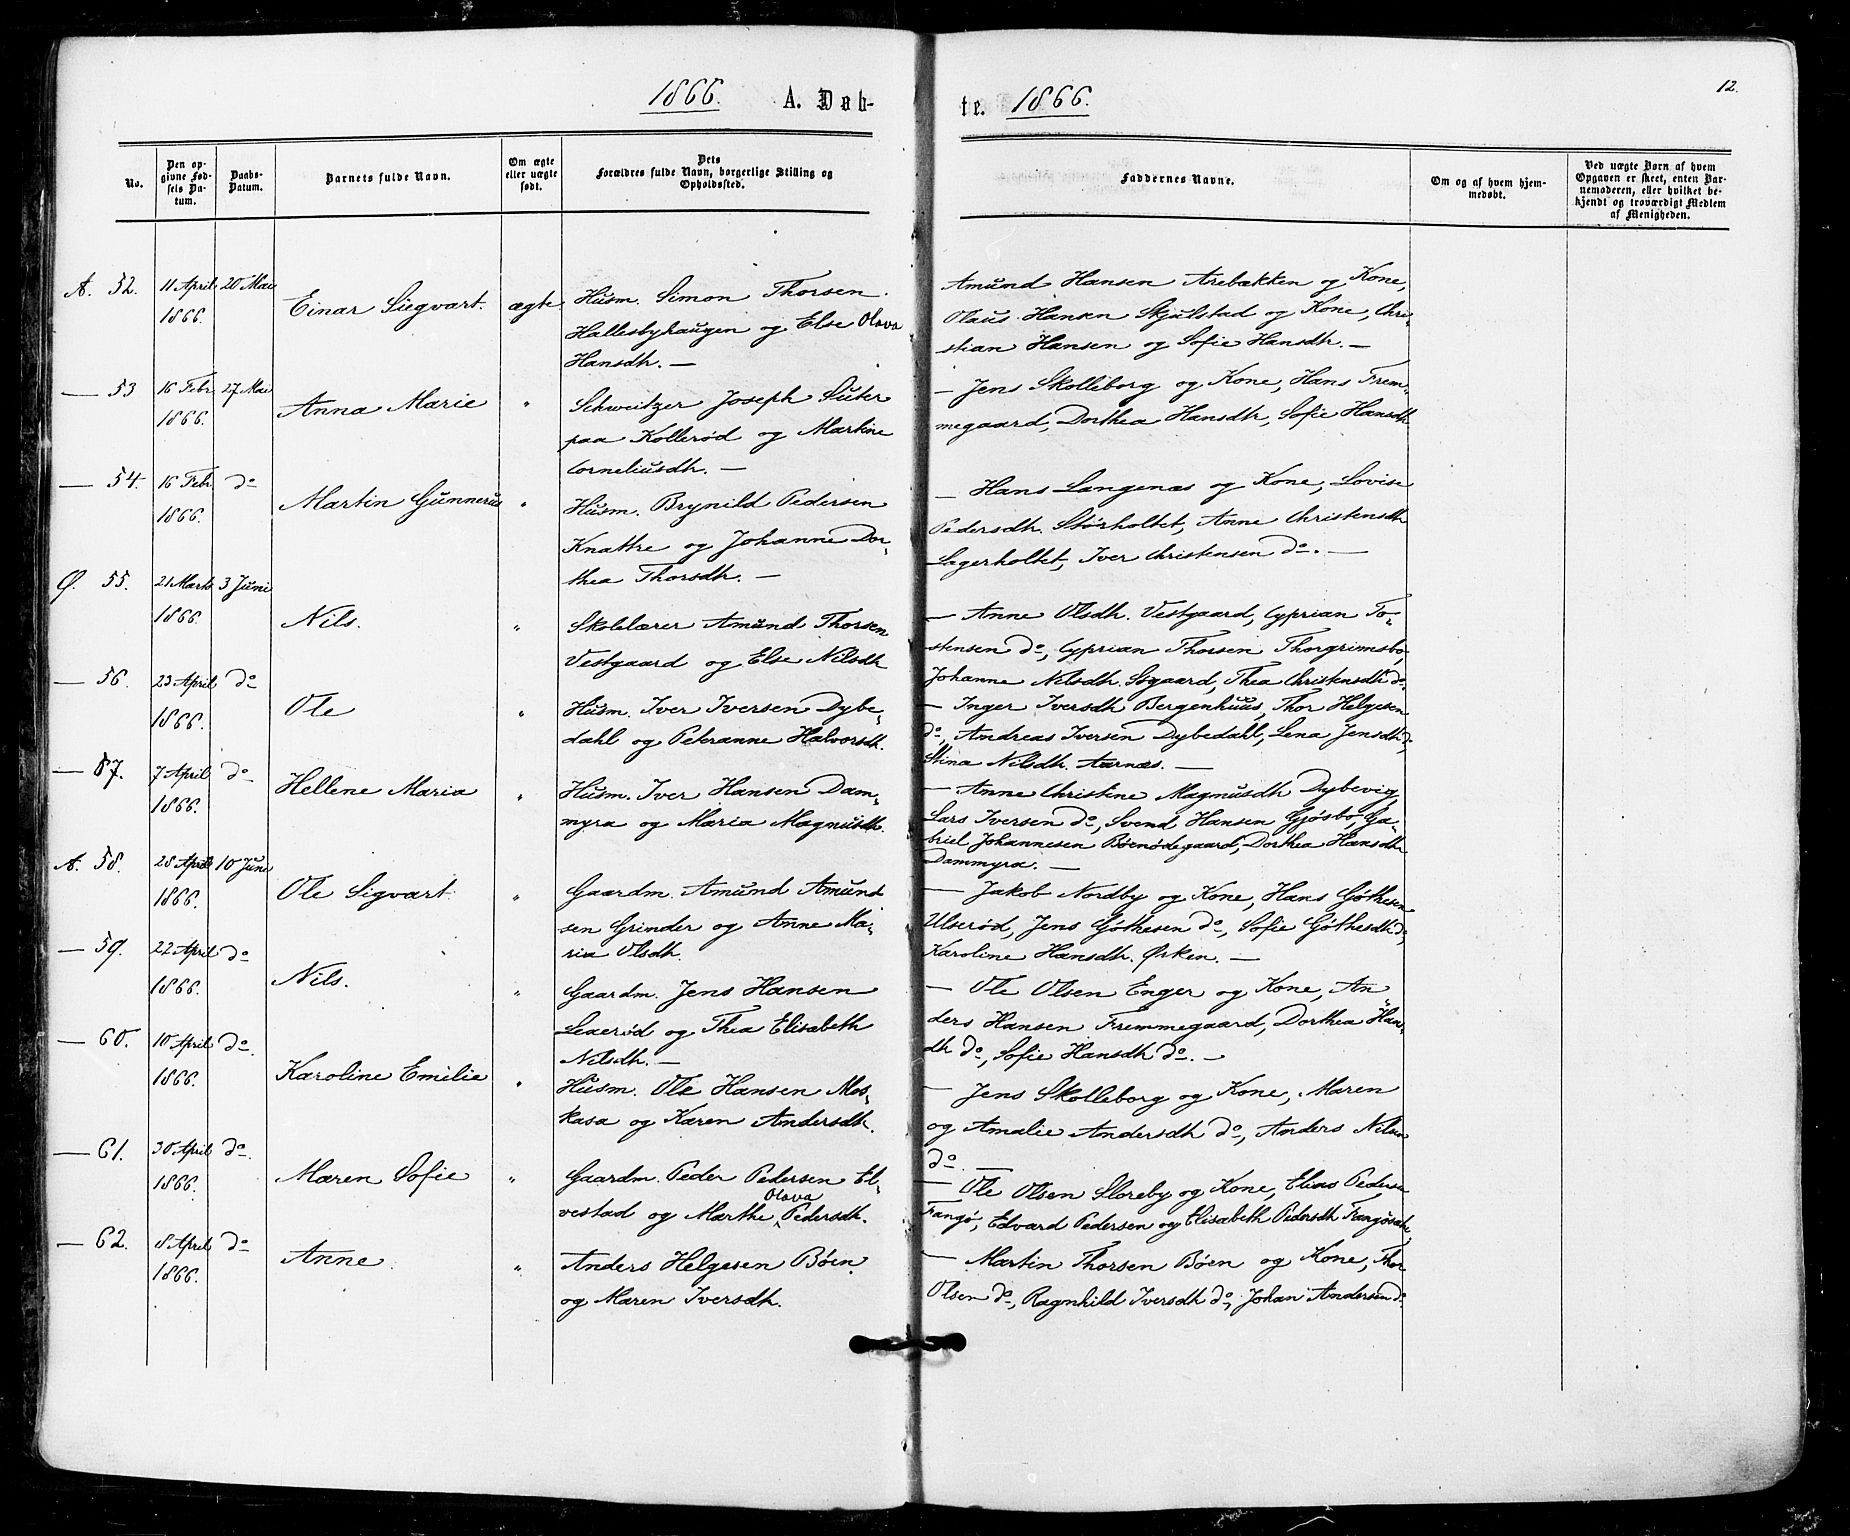 1866. A. Døb-
te. 1866.
12.
No.
Den op-
givne Fød-
sels Da-
tum.
Daabs-
Datum.
Barnets fulde Navn.
Om ægte
eller uægte
født.
Dets
Forældres fulde Navn, borgerlige Stilling og
Opholdssted.
Faddernes Navne.
Om og af hvem hjem-
medøbt.
Ved uægte Børn af hvem
Opgaven er skeet, enten Bar-
nemoderen, eller hvilket be-
kjendt og troværdigt Medlem
af Menigheden.
A. 52. 11 April 20 Mai
1866.
Einar Siegvart. ægte
Husm. Simon Thorsen
Hallesbyhaugen og Else Olava
Hansdh. —
Amund Hansen Arebækken og Kone,
Olaus Hansen Skjulstad og Kone, Chri-
stian Hansen og Sofie Hansdh. —
— 53 16 Febr. 27 Mai
1866.
Anna Marie "
Schweitzer Joseph Suter
paa Kollerød og Martine
Corneliusdh. —
— Jens Skolleborg og Kone, Hans Frem-
megaard, Dorthea Hansdh, Sofie Hansdh
— 54. 16 Febr. do
1866.
Martin Gunnerus "
Husm. Brynild Pedersen
Knattre og Johanne Dor-
thea Thorsdh. —
— Hans Langenæs og Kone, Lovise
Pedersdh. Storholtet, Anne Christensdh
Lagerholtet, Iver Christensen do. —
Ø. 55. 21 Marts 3 Juni
1866.
Nils. "
Skolelærer Amund Thorsen
Vestgaard og Else Nilsdh
— Anne Olsdh. Vestgaard, Cyprian To-
stensen do, Cyprian Thorsen Thorgrimsbo,
Johanne Nilsdh. Ssgaard, Thea Christensdh do.
— 56. 23 April do
1866.
Ole "
Husm. Iver Iversen Dybe-
dahl og Peteranne Halvorsdh.
— Inger Iversdh Bergenhuus, Thor Helgesen
do, Andreas Iversen Dybedahl, Lena Jensdh do,
Stina Nilsdh. Aarnæs. —
— 57. 7 April do
1866.
Hellene Maria "
Husm. Iver Hansen Dam-
myra og Maria Magnusdh.
— Anne Christine Magnusdh Dybevig,
Lars Iversen do, Svend Hansen Gjøsbo, Ga-
briel Johannesen Bøenødegaard, Dorthea Hansdh
Dammyra. —
A. 58. 28 April 10 Juni
1866.
Ole Sigvart. "
Gaardm. Amund Amund
sen Grinder og Anne Ma-
ria Olsdh.
— Jakob Nordby og Kone, Hans Gøthesen
Ulserød, Jens Gøthesen do, Sofie Gøthesdh do,
Karoline Hansdh. Ørken. —
— 59. 22 April do
1866.
Nils. "
Gaardm. Jens Hansen
Lexerød og Thea Elisabeth
Nilsdh. —
— Ole Olsen Enger og Kone, An
ders Hansen Fremmegaard, Dorthea Hans-
dh do, Sofie Hansdh do. —
— 60. 10 April do.
1866.
Karoline Emilie "
Husm. Ole Hansen Mos-
kasa og Karen Andersdh.
— Jens Skolleborg og Kone, Maren
og Amalie Andersdh do, Anders Nilsen
do. —
— 61. 30 April do.
1866.
Maren Sofie "
Gaardm. Peder Pedersen El-
vestad og Marthe Olava Pedersdh.
— Ole Olsen Sloreby og Kone, Elias Pedersen
Frangø, Edvard Pedersen og Elisabeth Pedersdh
— 62. 8 April do
1866.
Anne. "
Anders Helgesen Bøen
og Maren Iversdh.
— Martin Thorsen Bøen og Kone, Thor
Olsen do, Ragnhild Iversdh do, Johan Andersen do